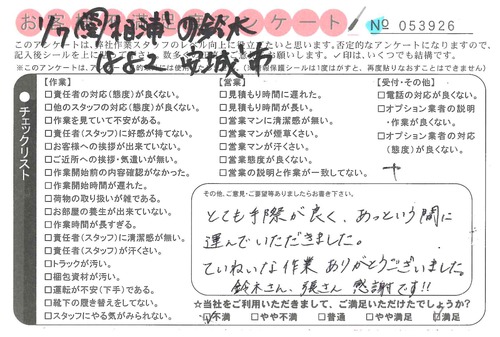 お客様満足アンケート
№ 053926
このアンケートは、弊社作業スタッフのレベル向上に役立てたいと思います。否定的なアンケートになりますので、
チェックリスト
【作業】
□責任者の対応(態度)が良くない。
□他のスタッフの対応(態度)が良くない。
□作業を見ていて不安がある。
□責任者(スタッフ)に好感が持てない。
□お客様への挨拶が出来ていない。
□ご近所への挨拶・気遣いが無い。
□作業開始前の内容確認がなかった。
□作業開始時間が遅れた。
□荷物の取り扱いが雑である。
□お部屋の養生が出来ていない。
□作業時間が長すぎる。
□責任者(スタッフ)に清潔感が無い。
□責任者(スタッフ)が汗くさい。
□トラックが汚い。
□梱包資材が汚い。
□運転が不安(下手)である。
□靴下の履き替えをしてない。
□スタッフにやる気がみられない。
【営業】
□見積もりに遅れた。
□見積もり時間が長い。
□営業マンに清潔感が無い。
□営業マンが煙草くさい。
□営業マンが汗くさい。
□営業態度が良くない。
□営業の説明と作業が一致してない。
【受付・その他】
□電話の対応が良くない。
□オプション業者の説明
・作業が良くない。
□オプション業者の対応
(態度)が良くない。
その他、ご意見・ご要望等ありましたらお書き下さい。
とても手際が良く、あっという間に
運んでいただきました。
ていねいな作業 ありがとうございました。
鈴木さん、張さん 感謝です!!
☆当社をご利用いただきまして、ご満足いただけたでしょうか?
□不満 □やや不満 □普通 □やや満足 □満足